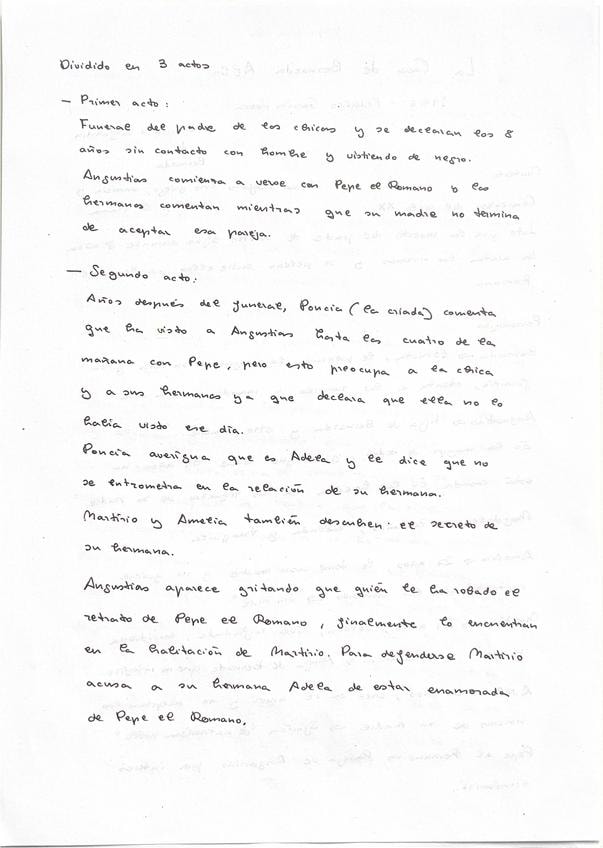 Dividido en 3 actos
— Primer acto:
Funeral del padre de las chicas y se declaran los 8
años sin contacto con hombre y vistiendo de negro.
Angustias comienza a verse con Pepe el Romano y las
hermanas comentan mientras que su madre no termina
de aceptar esa pareja.
— Segundo acto:
Años después del funeral, Poncia (la criada) comenta
que ha visto a Angustias hasta las cuatro de la
mañana con Pepe, pero esto preocupa a la chica
y a sus hermanas ya que declara que ella no lo
había visto ese día.
Poncia averigua que es Adela y le dice que no
se entrometa en la relación de su hermana.
Martirio y Amelia también descubren el secreto de
su hermana.
Angustias aparece gritando que quién le ha robado el
retrato de Pepe el Romano, finalmente lo encuentran
en la habitación de Martirio. Para defenderse Martirio
acusa a su hermana Adela de estar enamorada
de Pepe el Romano.